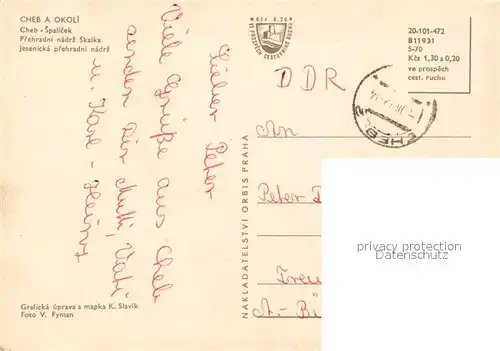 CHEB A OKOLÍ
Cheb - Špalíček
Přehradní nádrž Skalka
Jesenická přehradní nádrž
Lieber Peter
Viele Grüße aus Cheb
senden Dir Mutti, Vati
u. Karl-Heinz
Grafická úprava a mapka K. Slavík
Foto V. Fyman
NAKLADATELSTVÍ ORBIS PRAHA
Kčs 0,20
VE PROSPĚCH CESTOVNÍHO RUCHU
20-101-472
B11931
5-70
Kčs 1,30 a 0,20
ve prospěch
cest. ruchu
CHEB 2
DDR
An
Peter D
A.-B
privacy protection
Ansichtskarten-Center.de